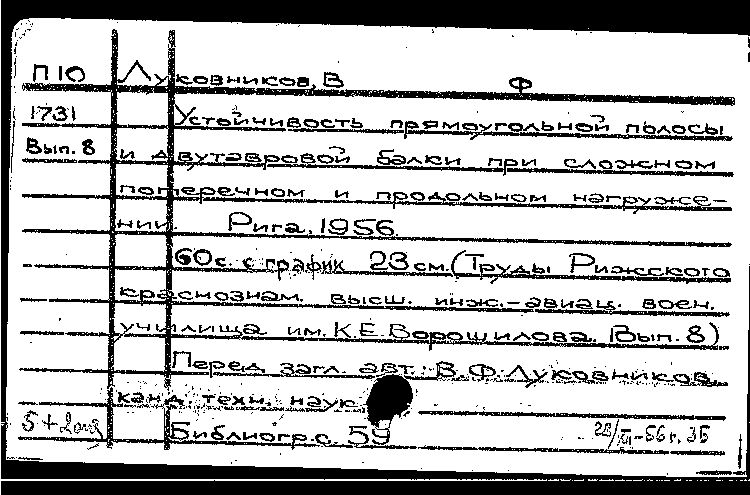 П10 Луковников, В Ф
1731 Устойчивость прямоугольной полосы
Вып. 8 и двутавровой балки при сложном
поперечном и продольном нагруже-
нии. Рига, 1956.
60с. с график 23см. (Труды Рижского
краснознам. высш. инж.-авиац. воен.
училища им. К.Е. Ворошилова. Вып. 8)
Перед загл. авт.: В.Ф. Луковников,
канд. техн. наук.
Библиогр. с. 59